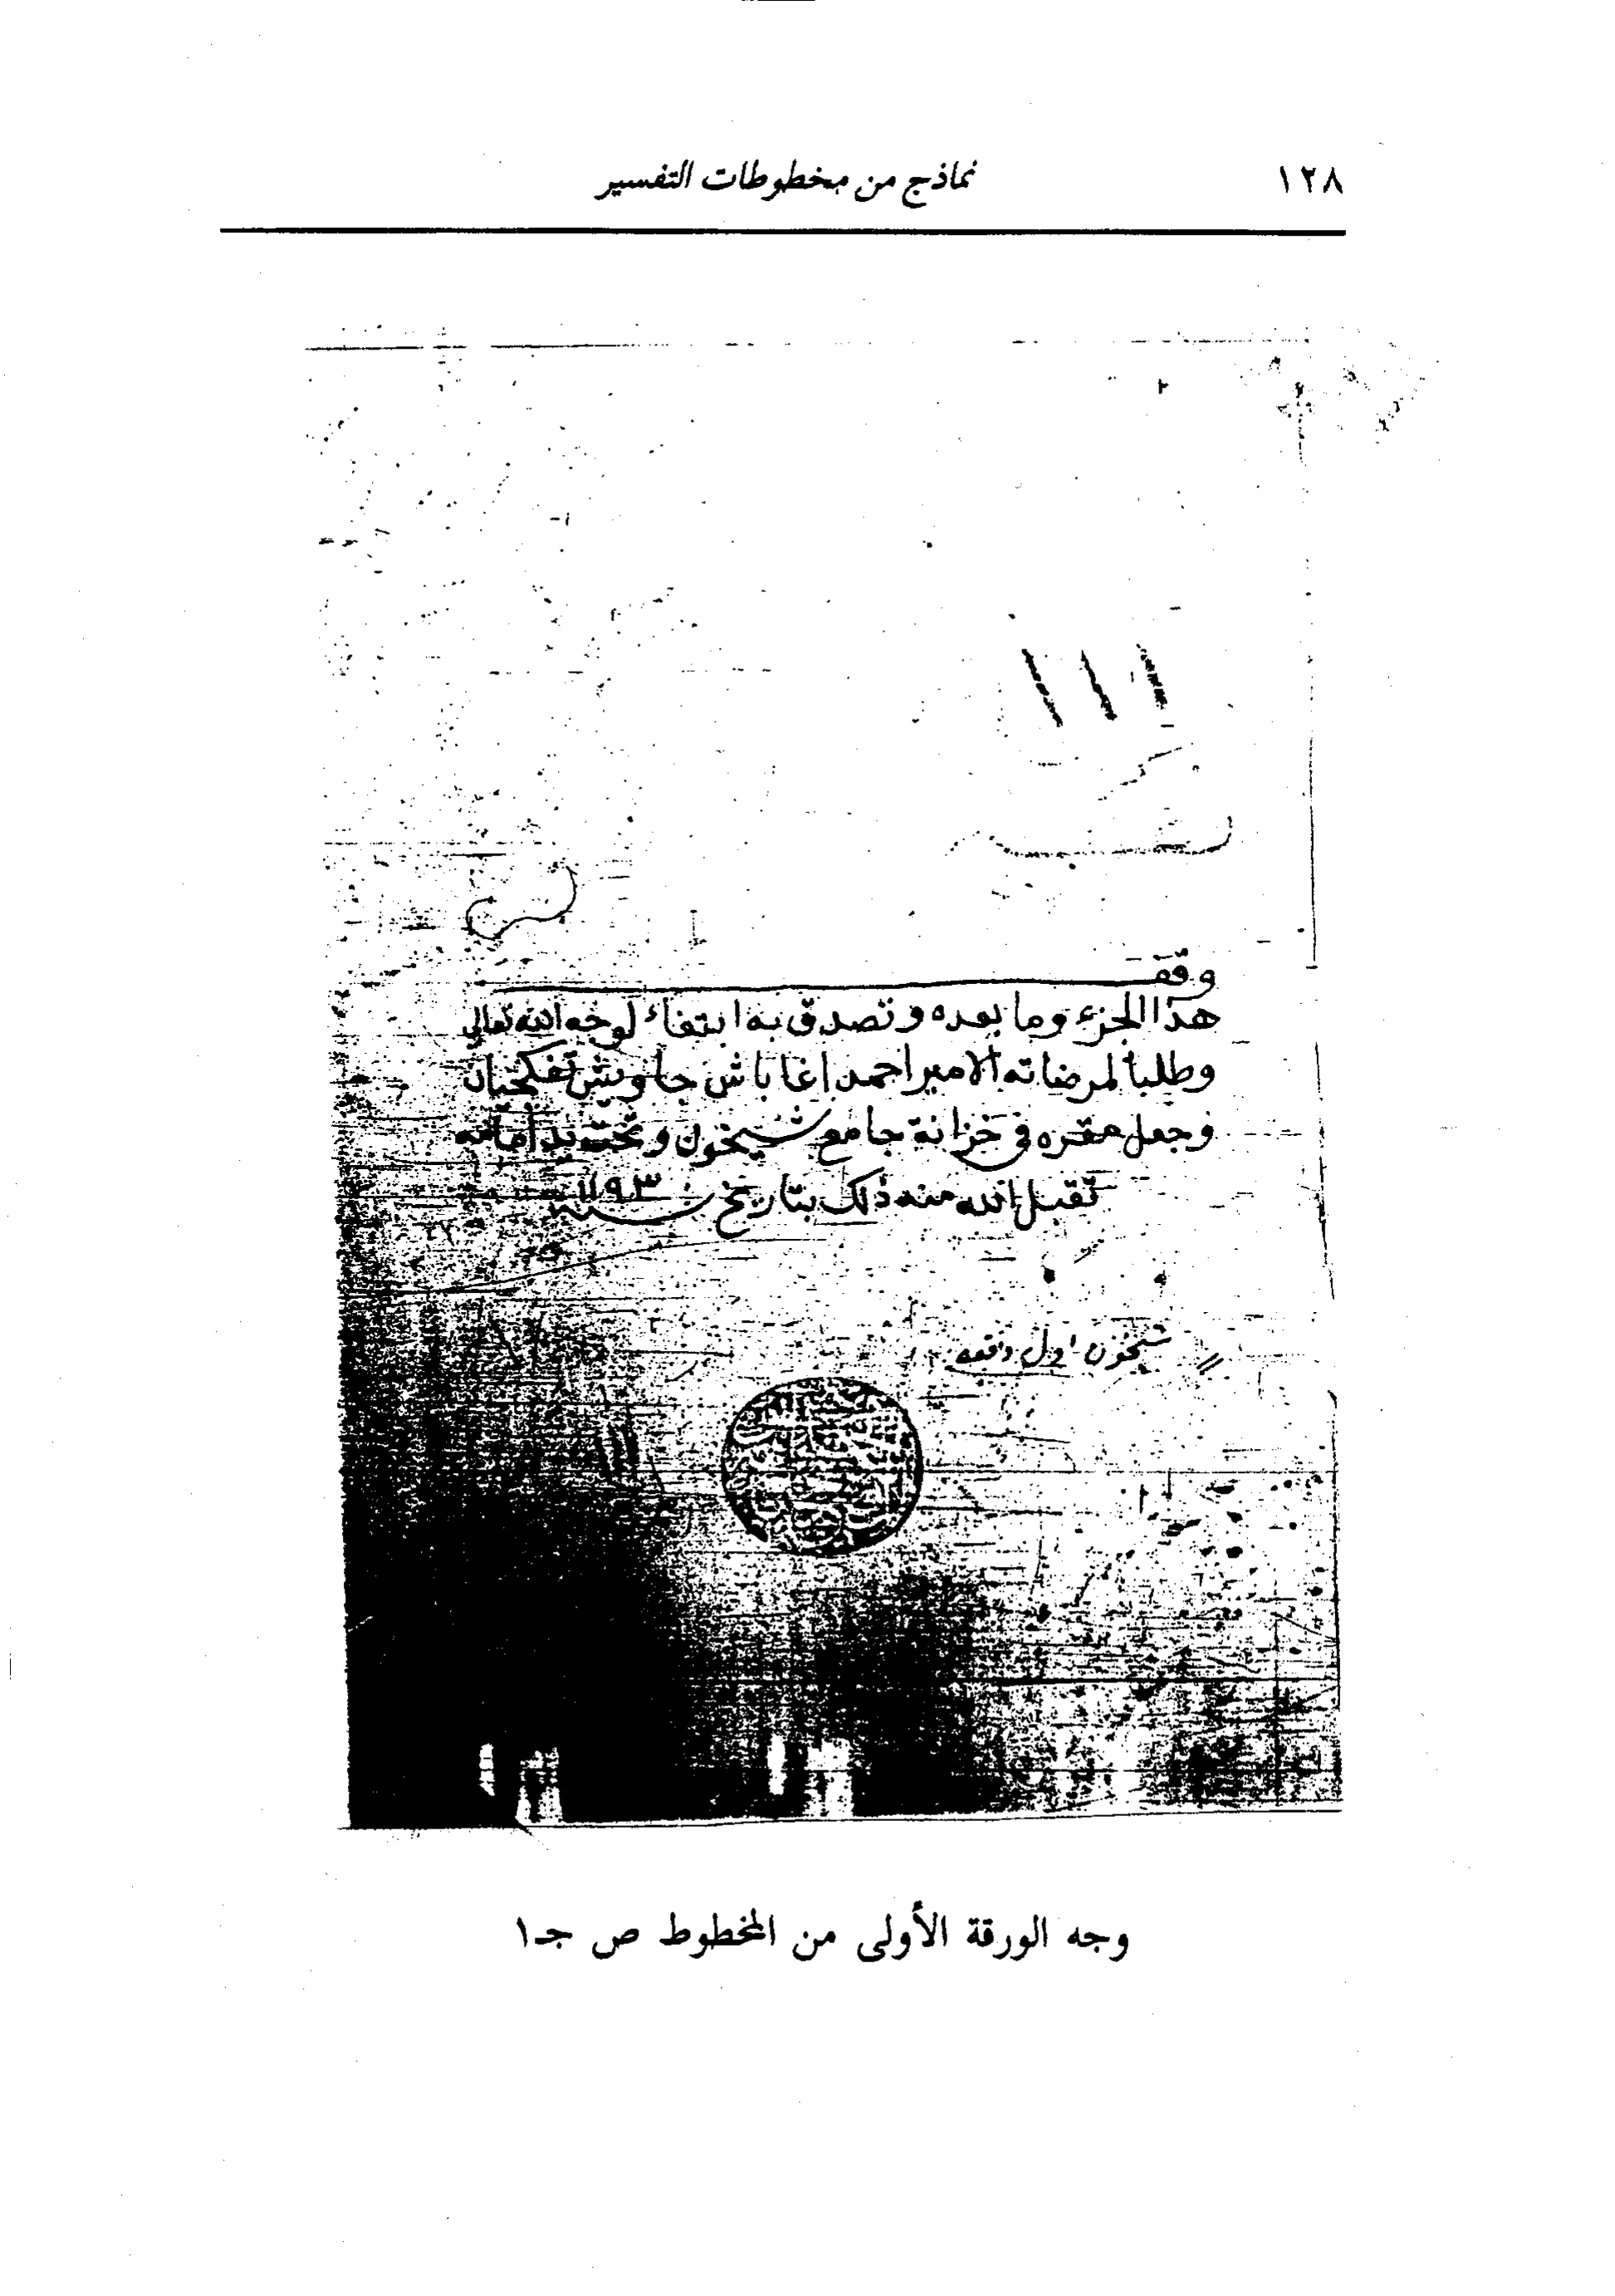 ١٢٨
نماذج من مخطوطات التفسير
١١١
وقف
هذا الجزء وما بعده وتصدق به ابتغاء لوجه الله تعالى
وطلبا لمرضاته الامير احمد اغا باش جاويش تفكجيان
وجعل مقره في خزانة جامع شيخون وتحت يد امامه
تقبل الله منه ذلك بتاريخ سنة ١١٩٣
شيخون اول دفعه
وجه الورقة الأولى من المخطوط ص جـ١